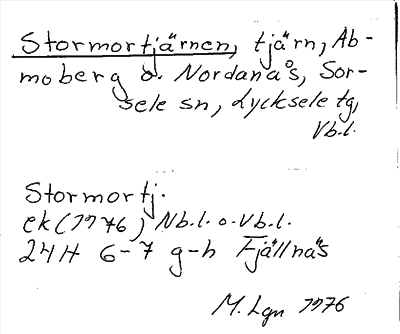 Stormortjärnen, tjärn, Ab-
moberg o. Nordanås, Sor-
sele sn, Lycksele tg,
Vb.l.
Stormortj.
ek (1976) Nb.l. o. Vb.l.
24H 6-7 g-h Fjällnäs
M. Lgn 1976